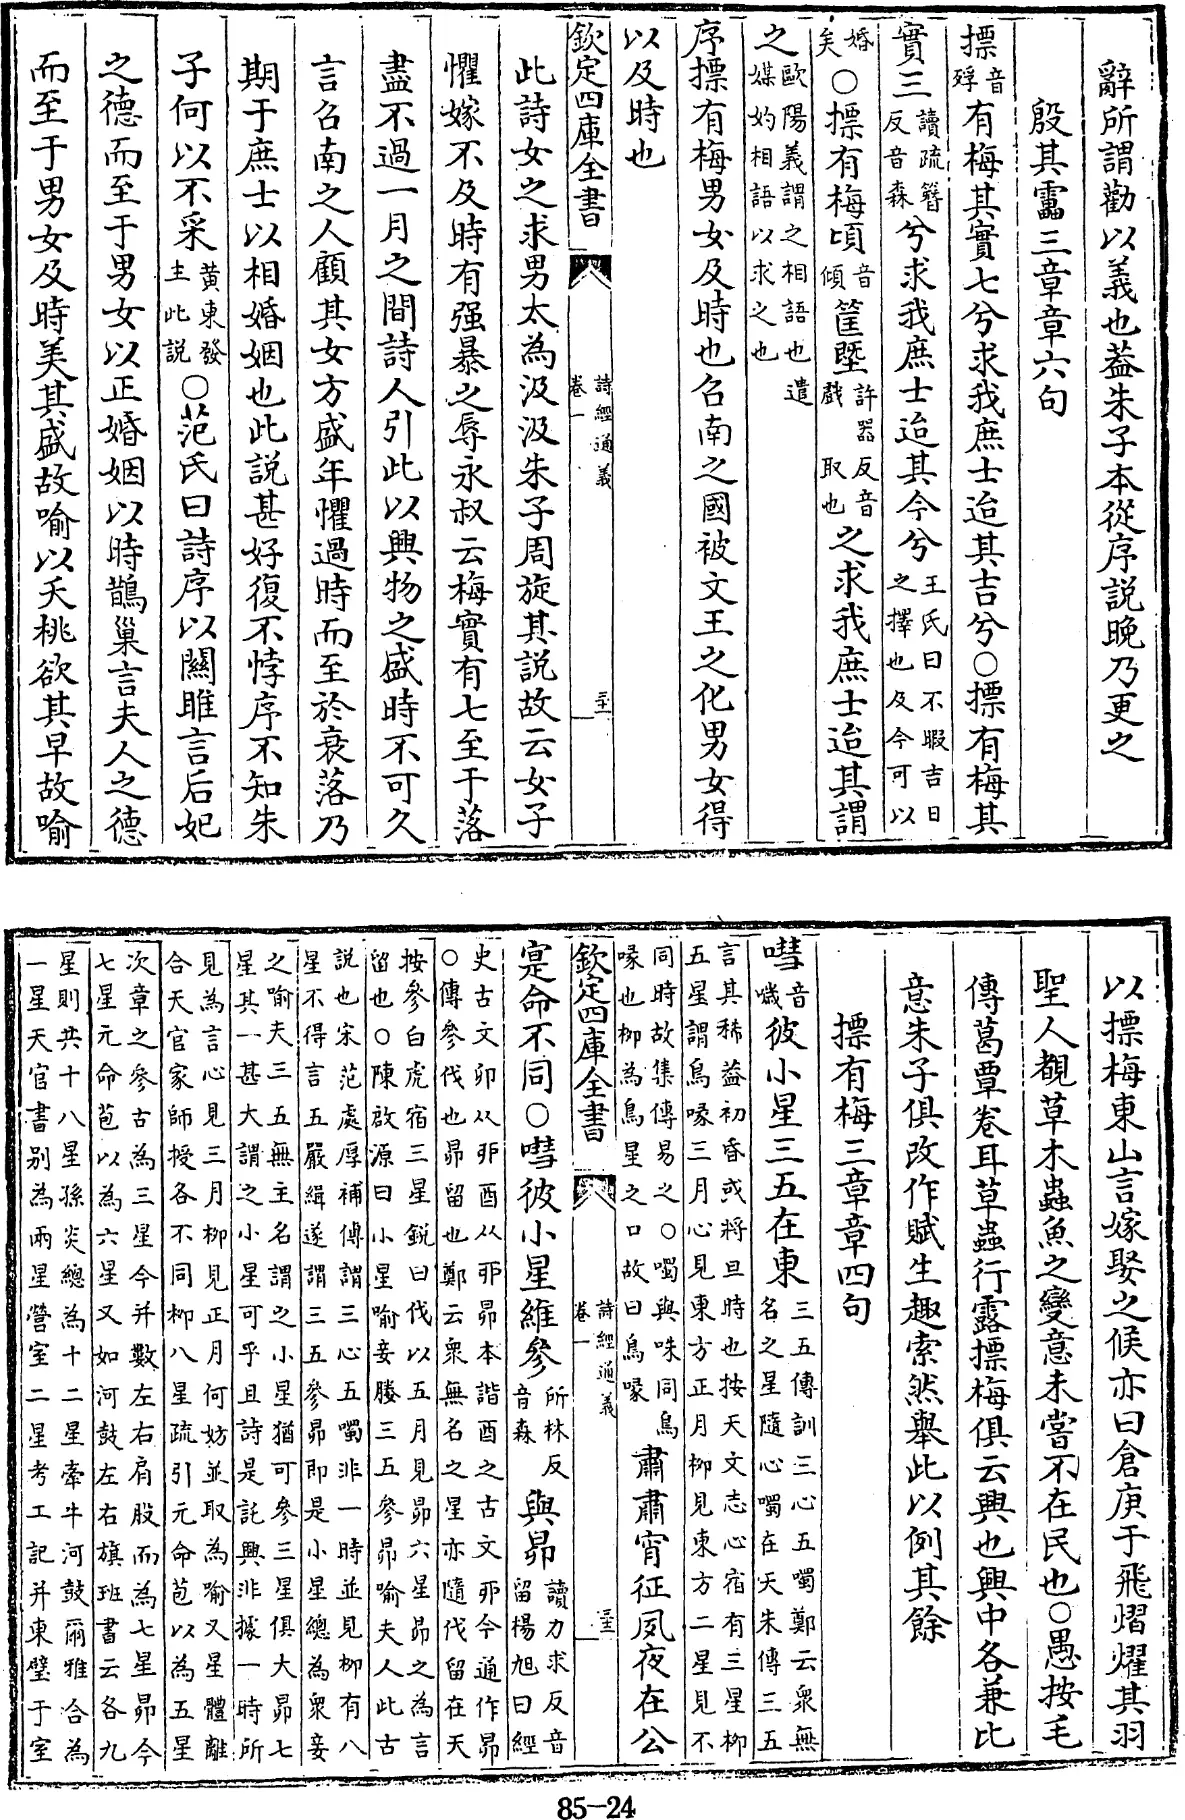 辭所謂勸以義也葢朱子本從序說晚乃更之
殷其靁三章章六句
摽音殍有梅其實七兮求我庶士迨其吉兮○摽有梅其
實三讀疏簪反音森兮求我庶士迨其今兮王氏曰不暇吉日之擇也及今可以
婚矣○摽有梅頃音傾筐墍許器反音戲取也之求我庶士迨其謂
之歐陽義謂之相語也遣媒妁相語以求之也
序摽有梅男女及時也召南之國被文王之化男女得
以及時也
欽定四庫全書 詩經通義 卷一
此詩女之求男太為汲汲朱子周旋其說故云女子
懼嫁不及時有强暴之辱永叔云梅實有七至于落
盡不過一月之間詩人引此以興物之盛時不可久
言召南之人顧其女方盛年懼過時而至於衰落乃
期于庶士以相婚姻也此說甚好復不悖序不知朱
子何以不采黄東發主此說○范氏曰詩序以關雎言后妃
之德而至于男女以正婚姻以時鵲巢言夫人之德
而至于男女及時美其盛故喻以夭桃欲其早故喻
以摽梅東山言嫁娶之候亦曰倉庚于飛熠燿其羽
聖人觀草木蟲魚之變意未嘗不在民也○愚按毛
傳葛覃卷耳草蟲行露摽梅俱云興也興中各兼比
意朱子俱改作賦生趣索然舉此以例其餘
摽有梅三章章四句
嘒音嘒彼小星三五在東三五傳訓三心五噣鄭云衆無名之星隨心噣在天朱傳三五
言其稀葢初昏或將旦時也按天文志心宿有三星柳五星謂鳥喙三月心見東方正月柳見東方二星見不
同時故集傳易之○噣與咮同鳥喙也柳為鳥星之口故曰鳥喙肅肅宵征夙夜在公
欽定四庫全書 詩經通義 卷一
寔命不同○嘒彼小星維參所林反音森與昴讀力求反音留楊旭曰經
史古文卯从戼酉从丣昴本諧酉之古文丣今通作昴○傳參伐也昴留也鄭云衆無名之星亦隨伐留在天
按參白虎宿三星銳曰伐以五月見昴六星昴之為言留也○陳啟源曰小星喻妾媵三五參昴喻夫人此古
說也宋范處厚補傳謂三心五噣非一時並見柳有八星不得言五嚴緝遂謂三五參昴即是小星總為衆妾
之喻夫三五無主名謂之小星猶可參三星俱大昴七星其一甚大謂之小星可乎且詩是託興非據一時所
見為言心見三月柳見正月何妨並取為喻又星體離合天官家師授各不同柳八星疏引元命苞以為五星
次章之參古為三星今并數左右肩股而為七星昴今七星元命苞以為六星又如河鼓左右旗班書云各九
星則共十八星孫炎總為十二星牽牛河鼓爾雅合為一星天官書别為兩星營室二星考工記并東壁于室
85-24